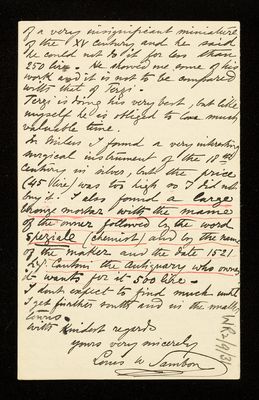 of a very insignificant miniature
of the XV Century, and he said
he could not do it for less than
250 lire. He showed me some of his
work and it is not to be compared
with that of Terzi.
Terzi is doing his very best, but like
myself he is obliged to lose much
valuable time.
In Milan I found a very interesting
surgical instrument of the 18th
Century in silver, but the price
(45 lire) was too high so I did not
buy it. I also found a large
bronze mortar with the name
of the owner followed by the word
Speziale (chemist), and by the name
of the maker and the date 1521.
Cantoni the antiquary who owns
it wants for it 500 lire.
I dont expect to find much until
I get further south and in the smaller
towns.
With kindest regards
yours very sincerely
Louis W Sambon